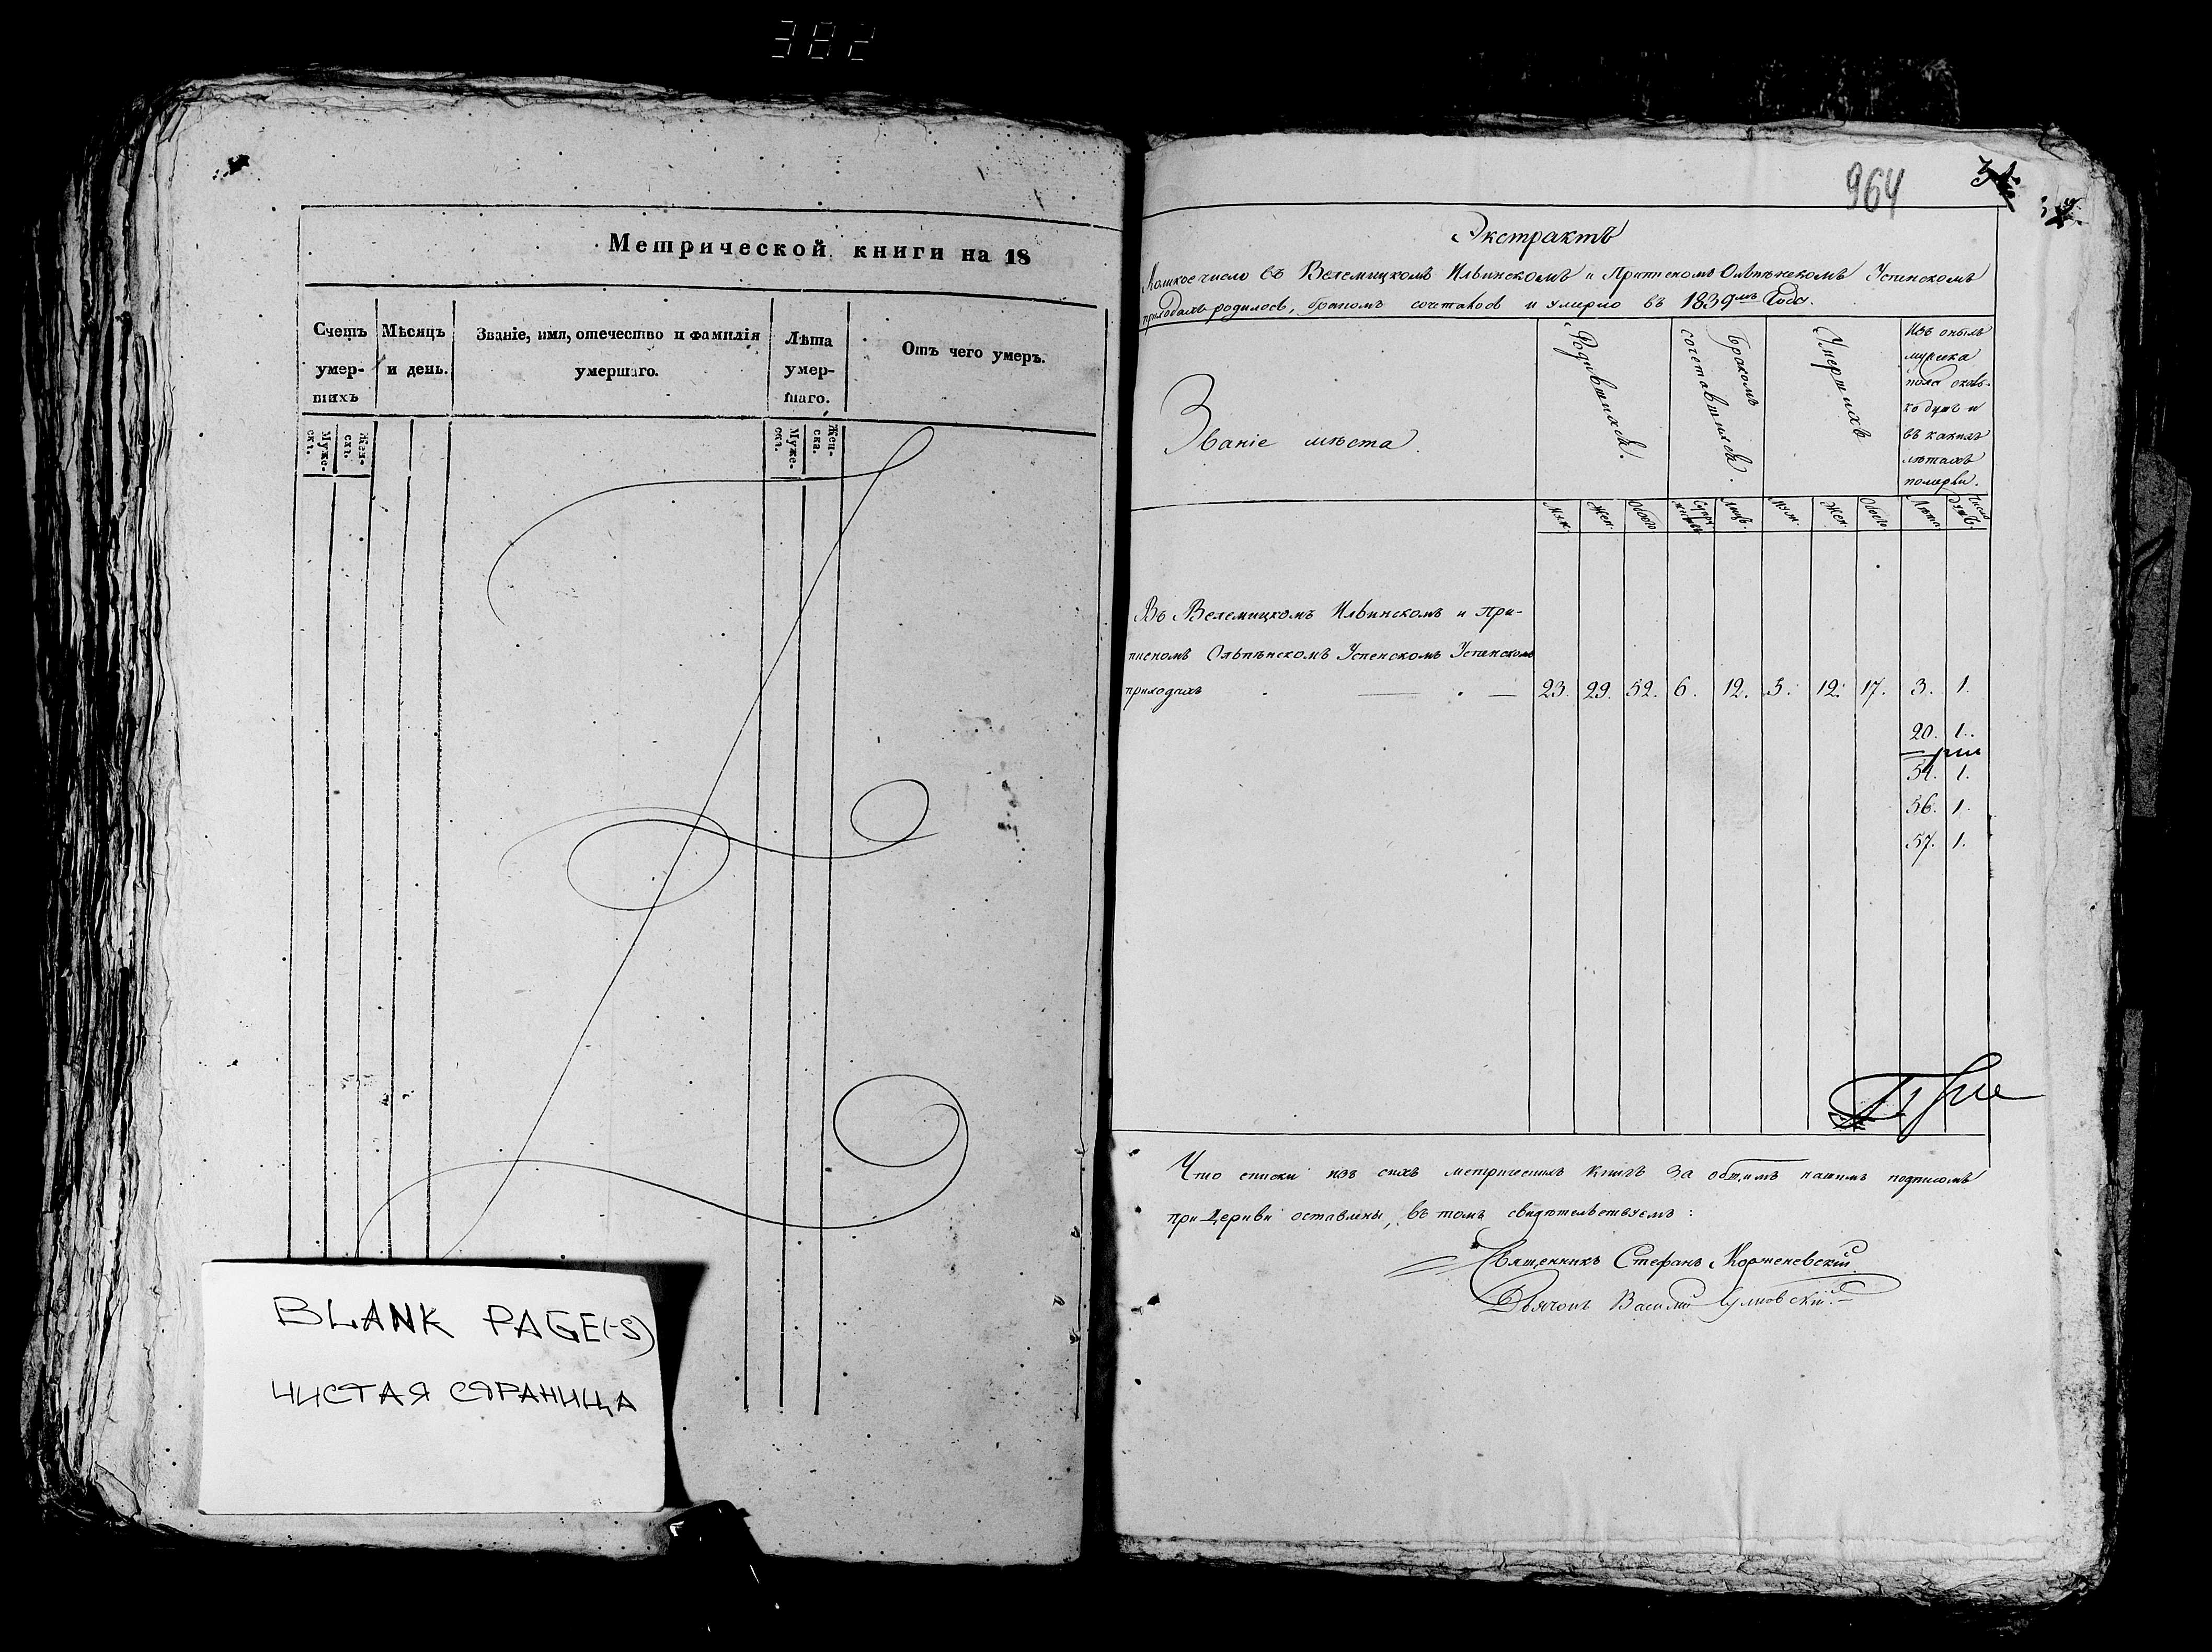 382
Метрической книги на 18
Счетъ умер- шихъ
Мѣсяцъ и день.
Званіе, имя, отечество и фамилія умершаго.
Лѣта умер- шаго.
Отъ чего умеръ.
Муже- ска.
Жен- ска.
Муже- ска.
Жен- ска.
BLANK PAGE(-S)
ЧИСТАЯ СТРАНИЦА
964
Экстрактъ
Коликое число въ Велемицкомъ Ильинскомъ и Приписномъ Ольпѣнскомъ Успенскомъ
приходахъ родилось, бракомъ сочталось и умерло въ 1839мъ Году.
Званіе мѣста.
Родившихся.
Бракомъ сочетавшихся.
Умершихъ
Изъ оныхъ
мужеска
пола сколь-
ко душъ и
въ какихъ
лѣтахъ
померли.
Муж. Жен. Обоего Лицъ. Муж. Жен. Обоего Лѣта. Число душъ.
Въ Велемицкомъ Ильинскомъ и При-
писномъ Ольпѣнскомъ Успенскомъ Успенскомъ
приходахъ 23. 29. 52. 6. 12. 5. 12. 17. 3. 1.
20. 1.
54. 1.
56. 1.
57. 1.
Что списки изъ сихъ метрическихъ книгъ за общимъ нашимъ подписомъ
при Церкви оставлены, въ томъ свидѣтельствуемъ:
Священникъ Стефанъ Корженевскій
Дьячокъ Василій